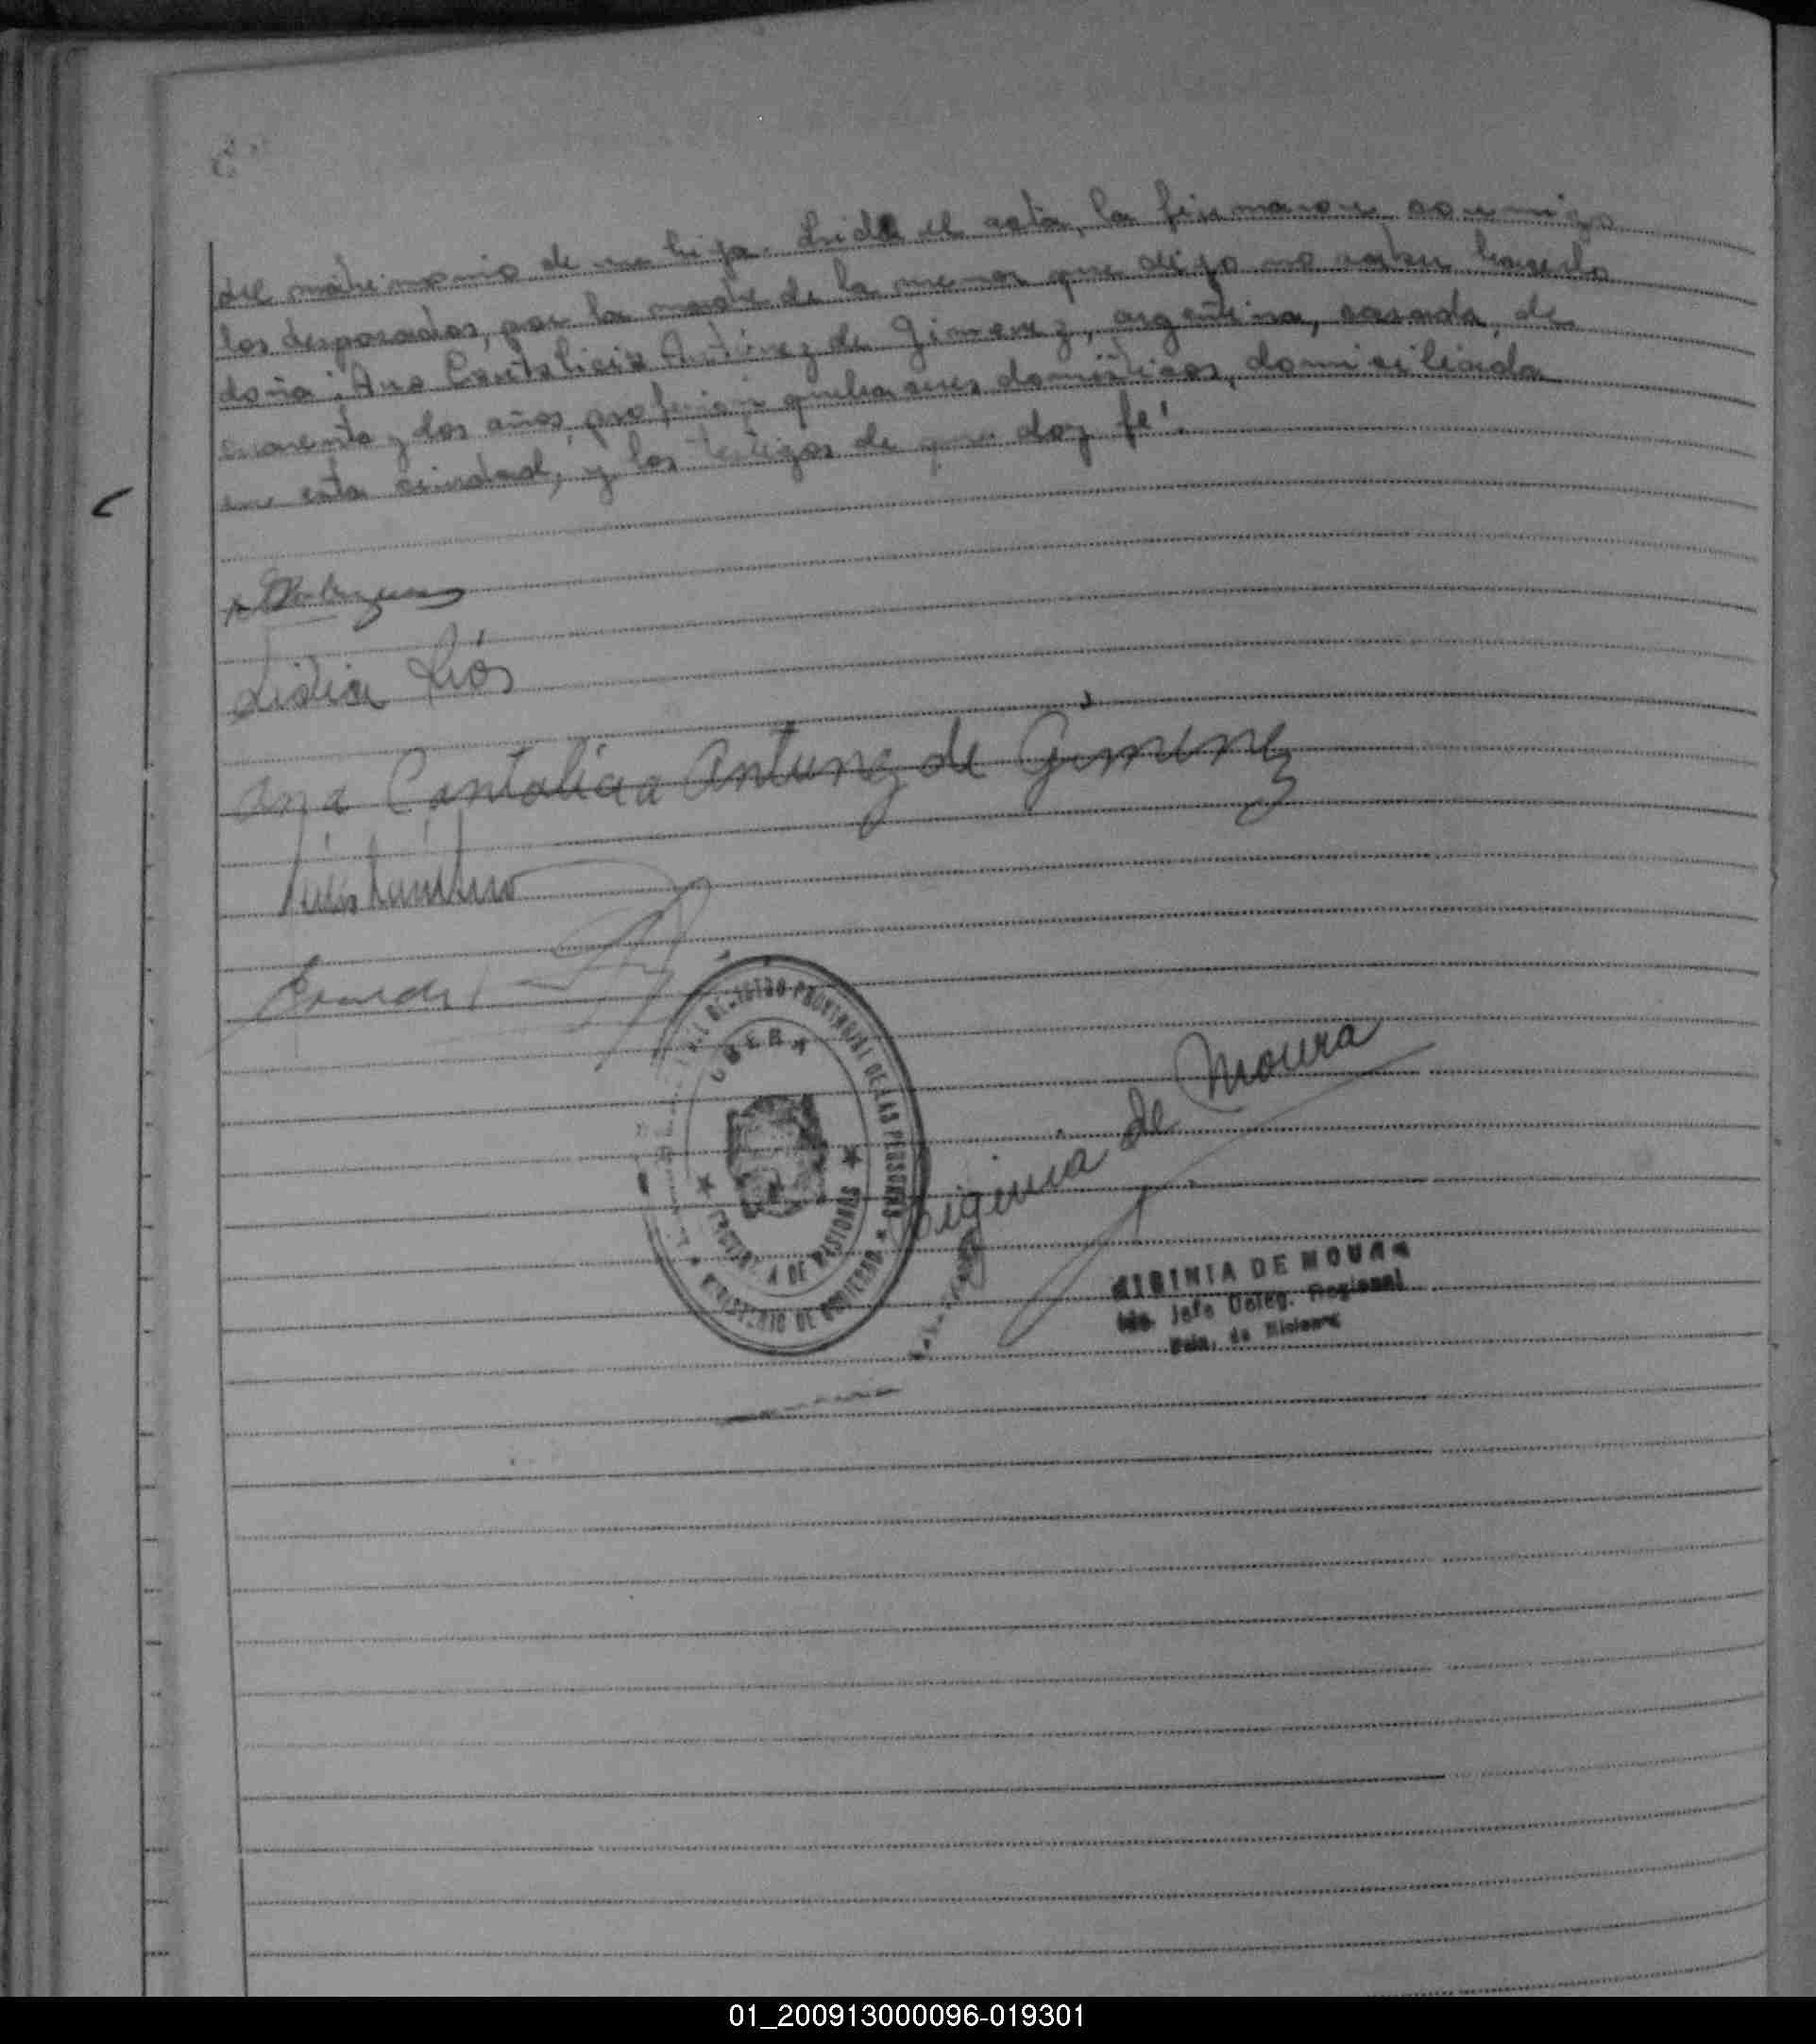 del matrimonio de su hija. Leida el acta, la firmaron conmigo
los desposados, por la madre de la menor que dijo no saber hacerlo
doña: Ana Cantalicia Antúnez de Gimenez, argentina, casada, de
cuarenta y dos años, profesión quehaceres domésticos, domiciliada
en esta ciudad, y los testigos de que doy fé.
Lidia Ríos
Ana Cantalicia Antunez de Gimenez
REGISTRO PROVINCIAL DE LAS PERSONAS
OBERA
PROVINCIA DE MISIONES
MINISTERIO DE GOBIERNO
de Moura
DE MOURA
Jefe Deleg. Regional
Pcia. de Misiones
01_200913000096-019301